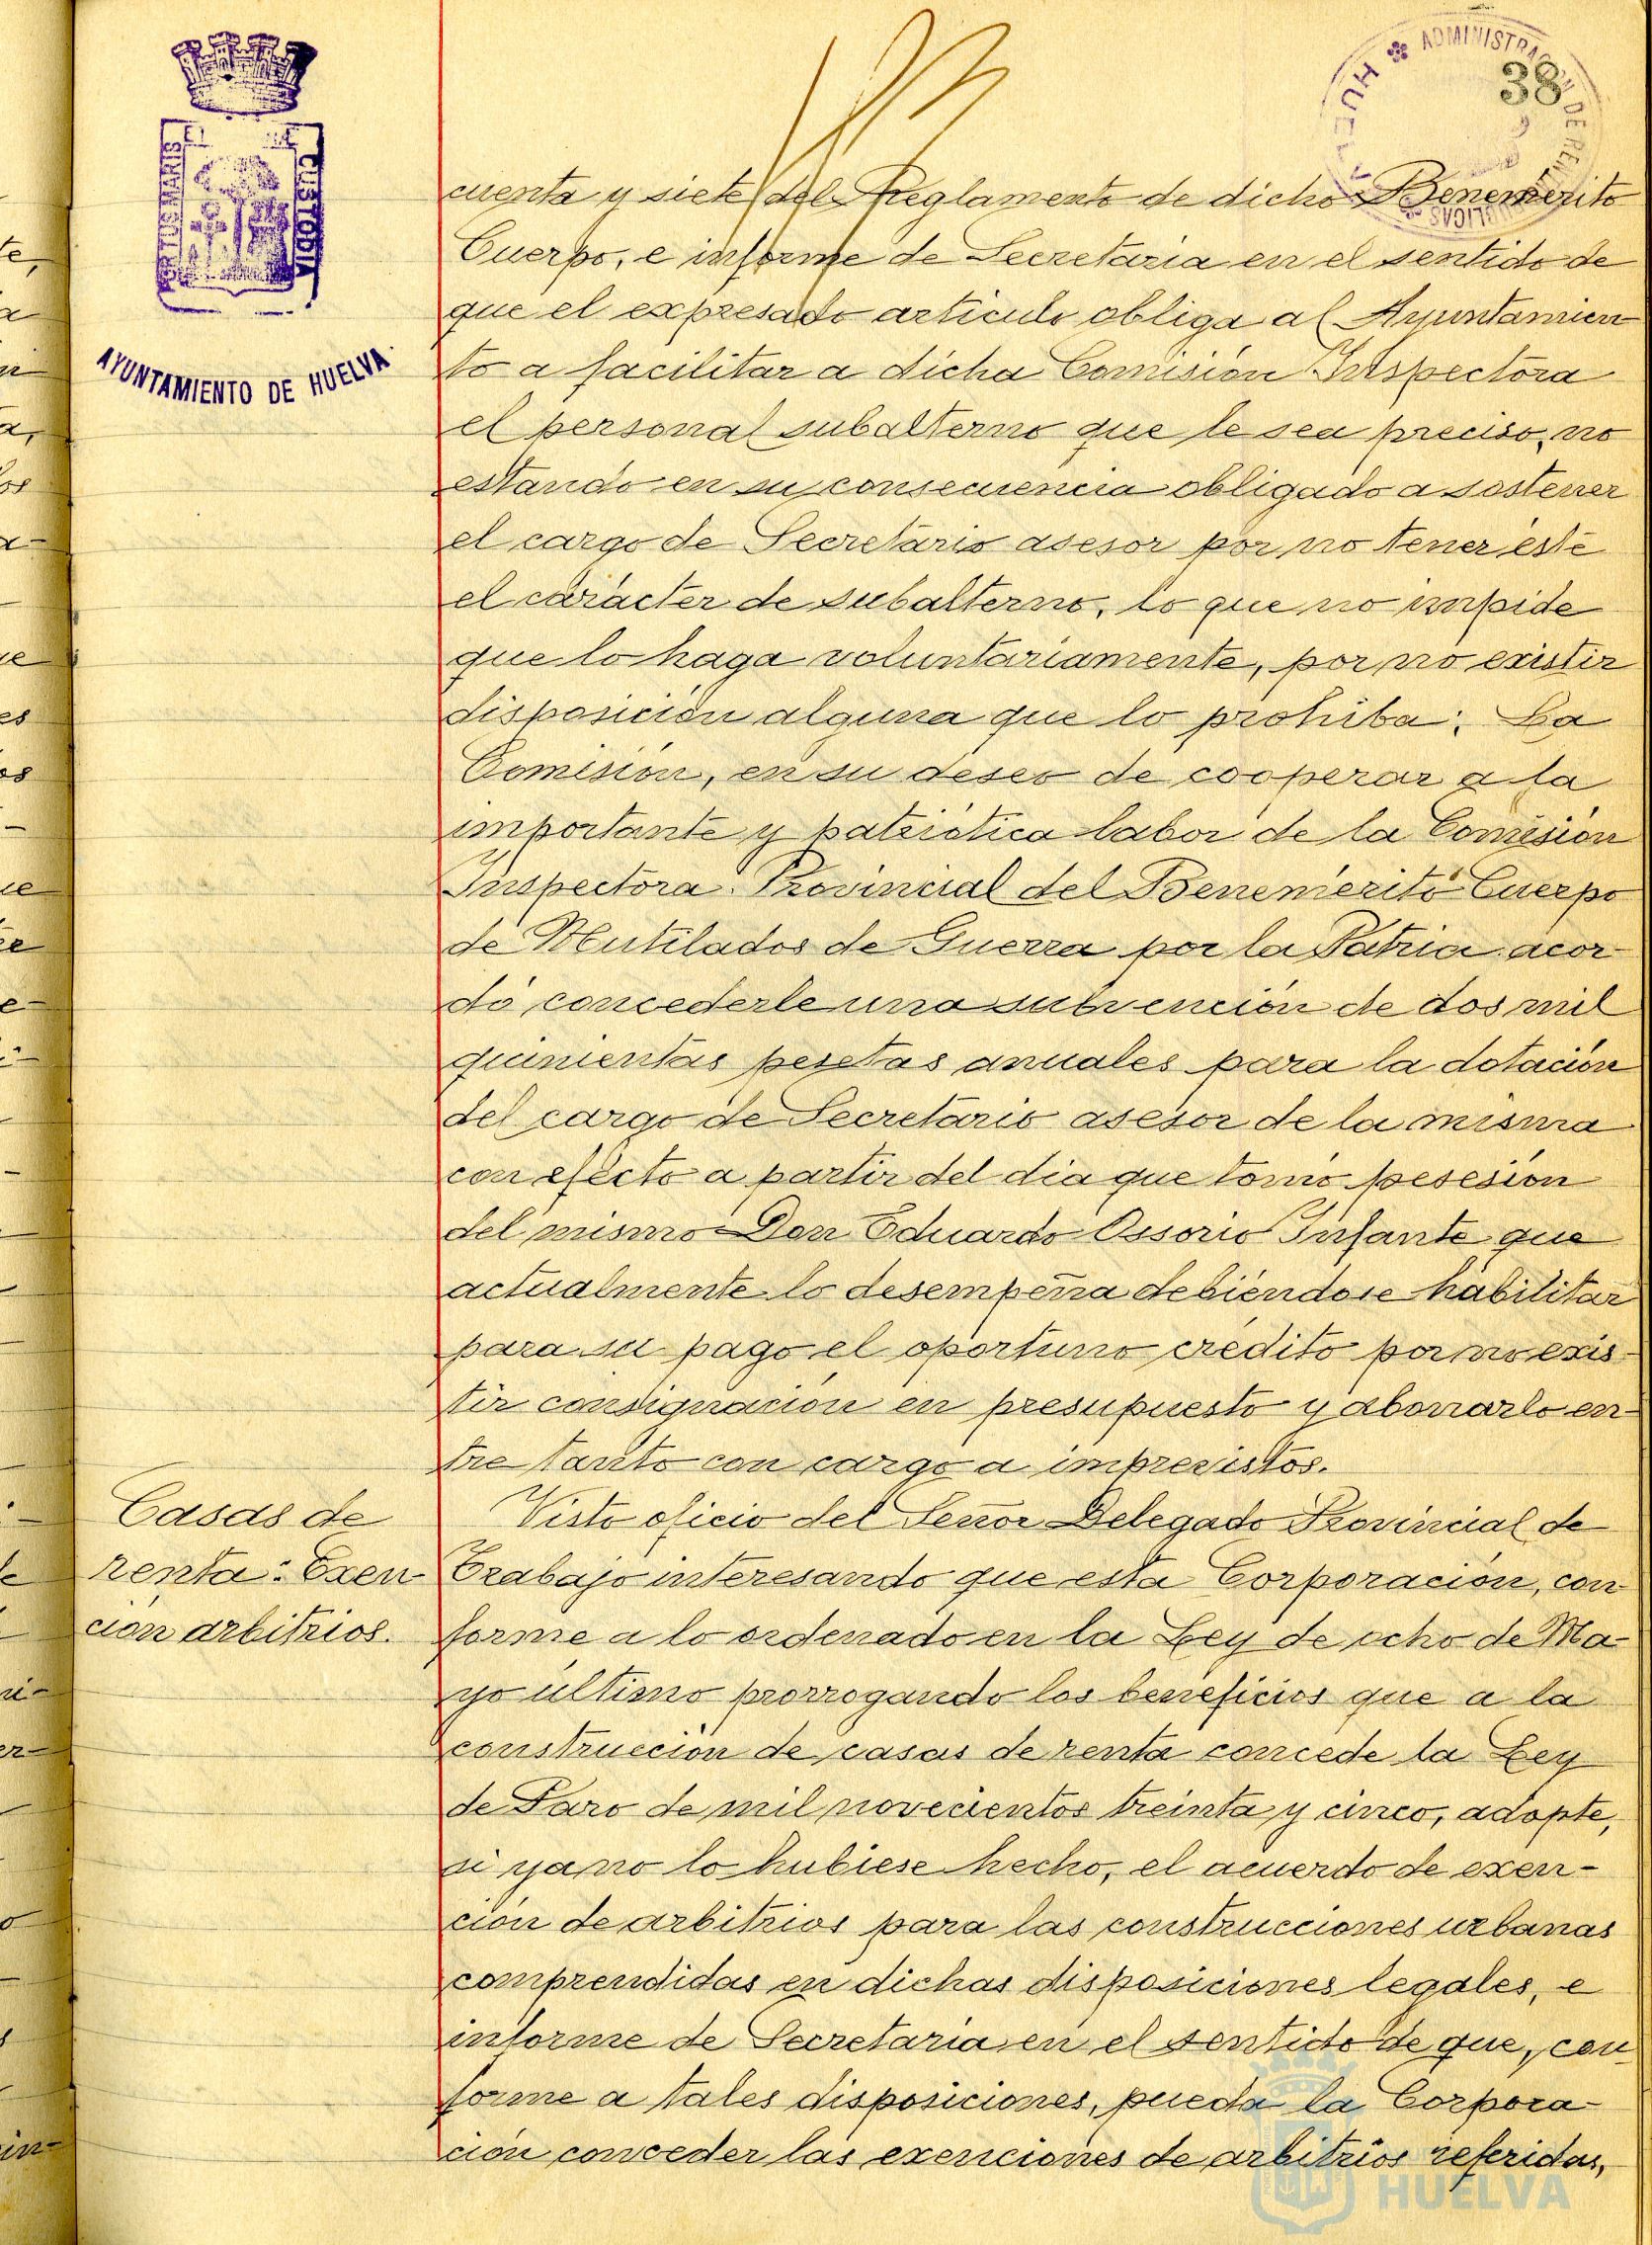 38
ADMINISTRACIÓN DE RENTAS PUBLICAS
HUELVA
PORTUS MARIS ET
CUSTODIA
AYUNTAMIENTO DE HUELVA
cuenta y siete del Reglamento de dicho Benemerito
Cuerpo, e informe de Secretaria en el sentido de
que el expresado articulo obliga al Ayuntamien
to a facilitar a dicha Comisión Inspectora
el personal subalterno que le sea preciso, no
estando en su consecuencia obligado a sostener
el cargo de Secretario asesor por no tener éste
el carácter de subalterno, lo que no impide
que lo haga voluntariamente, por no existir
disposición alguna que lo prohiba; La
Comisión, en su deseo de cooperar a la
importante y patriótica labor de la Comisión
Inspectora Provincial del Benemérito Cuerpo
de Mutilados de Guerra por la Patria acor-
dó concederle una subvención de dos mil
quinientas pesetas anuales para la dotación
del cargo de Secretario asesor de la misma
con efecto a partir del dia que tomó posesión
del mismo Don Eduardo Ossorio Infante que
actualmente lo desempeña debiéndose habilitar
para su pago el oportuno crédito por no exis-
tir consignación en presupuesto y abonarlo en-
tre tanto con cargo a imprevistos.
Casas de
renta: Exen-
ción arbitrios.
Visto oficio del Señor Delegado Provincial de
Trabajo interesando que esta Corporación, con-
forme a lo ordenado en la Ley de ocho de Ma-
yo último prorrogando los beneficios que a la
construcción de casas de renta concede la Ley
de Paro de mil novecientos treinta y cinco, adopte,
si ya no lo hubiese hecho, el acuerdo de exen-
ción de arbitrios para las construcciones urbanas
comprendidas en dichas disposiciones legales, e
informe de Secretaria en el sentido de que, con-
forme a tales disposiciones, pueda la Corpora-
ción conceder las exenciones de arbitrios referidas,
HUELVA